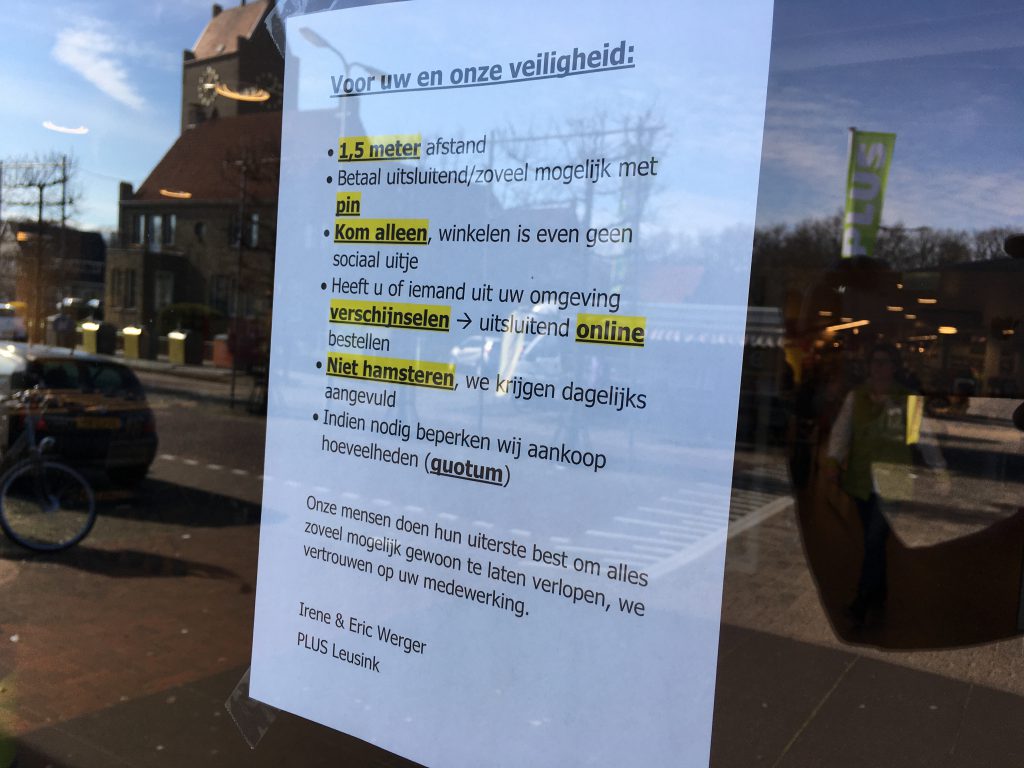 Voor uw en onze veiligheid:
• 1,5 meter afstand
• Betaal uitsluitend/zoveel mogelijk met
pin
• Kom alleen, winkelen is even geen
sociaal uitje
• Heeft u of iemand uit uw omgeving
verschijnselen → uitsluitend online
bestellen
• Niet hamsteren, we krijgen dagelijks
aangevuld
• Indien nodig beperken wij aankoop
hoeveelheden (quotum)
Onze mensen doen hun uiterste best om alles
zoveel mogelijk gewoon te laten verlopen, we
vertrouwen op uw medewerking.
Irene & Eric Werger
PLUS Leusink
PLUS